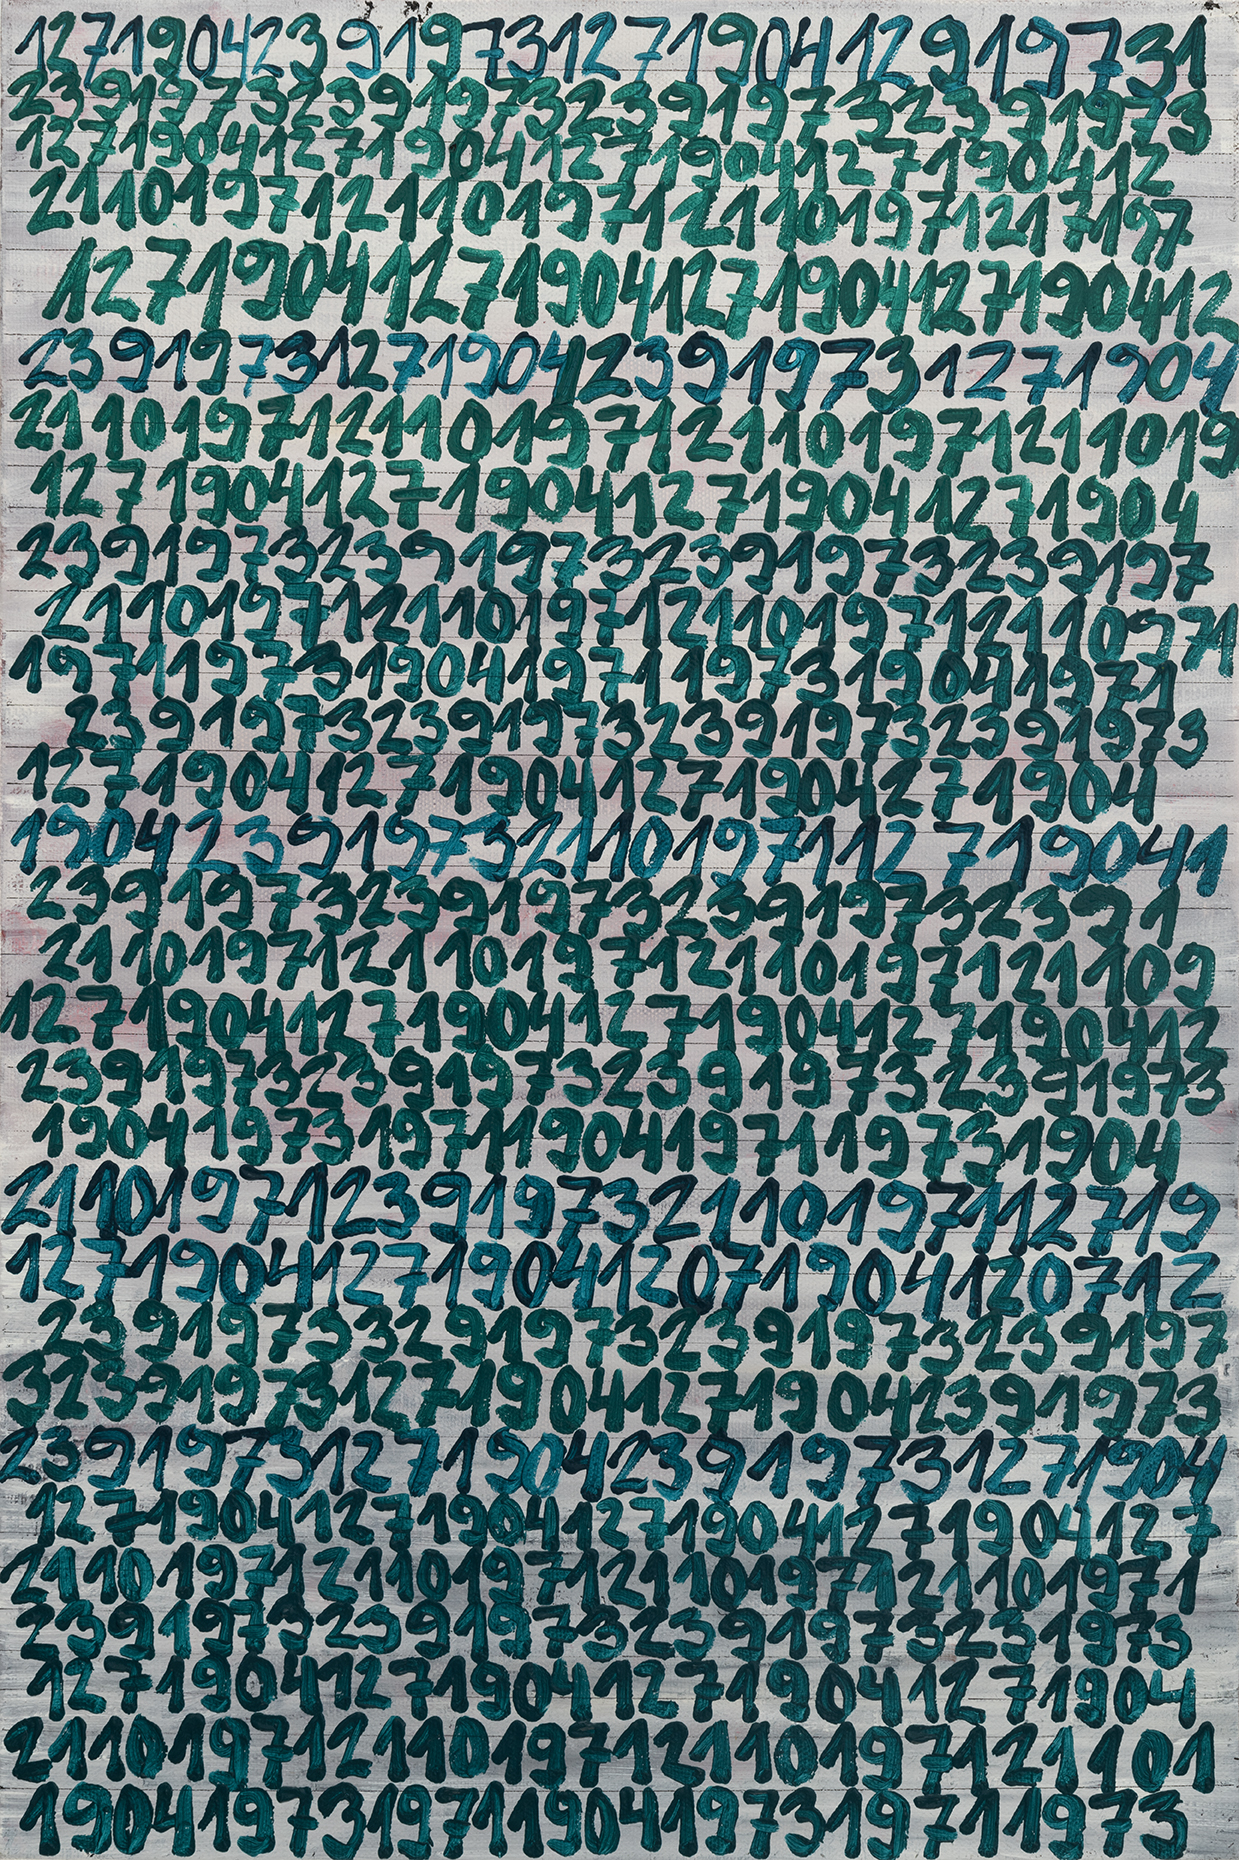 12719042391973127190412919731
2391973239197323919732391973
127190412719041271904127190412
211019712110197121101971217197
1271904112719041271904127190412
2391973127190423919731271904
211019712110197121101971211019
1271904127190412719041271904
239197323919732391973239197
2110197121101971211019712110971
1971197319041971197319041971
2391973239197323919732391973
127190412719041271904271904
190423919732110197112719041
2391973239197323919732391
21101971211019712110197121109
1271904112719041271904127190412
2391973239197323919732391973
1904197319711904197119731904
2110197123919732110197112719
1271904127190412071904120712
239197332919732391973239197
32391973127190412719042391973
2391973127190423919731271904
1271904127190412719041271904127
21101971211019712110197121101971
239197323919732391973231973
1271904127190412719041271904
21101971211019712110197121101
1904197319711904197319711973